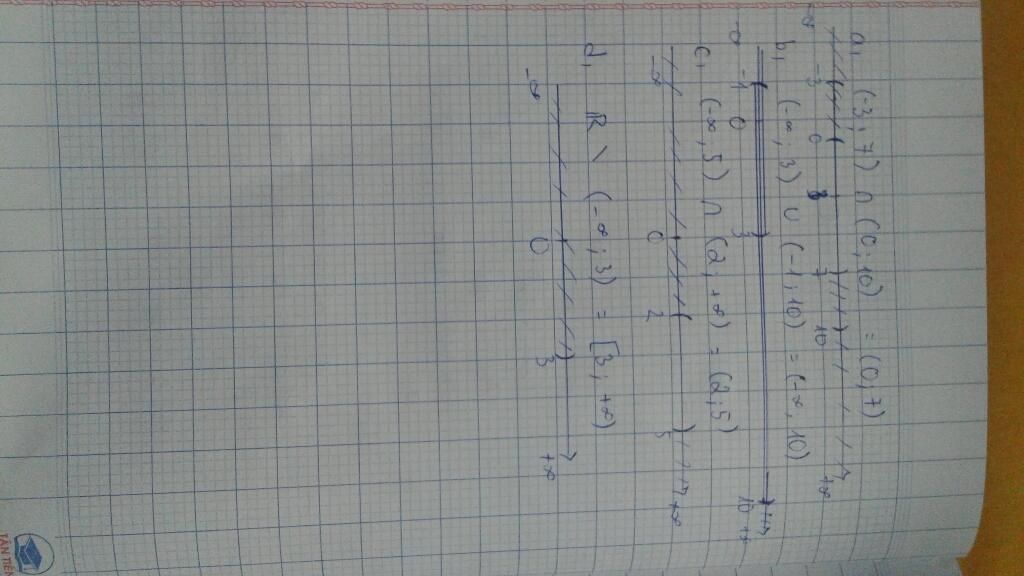 a, (-3; 7) ∩ (0; 10) = (0; 7)
-∞ -3 0 7 10 +∞
b, (-∞; 3) ∪ (-1; 10) = (-∞, 10)
-∞ -1 0 3 10 +∞
c, (-∞, 5) ∩ (2; +∞) = (2; 5)
-∞ 0 2 5 +∞
d, R \ (-∞; 3) = [3; +∞)
-∞ 0 3 +∞
TÂN TIẾN